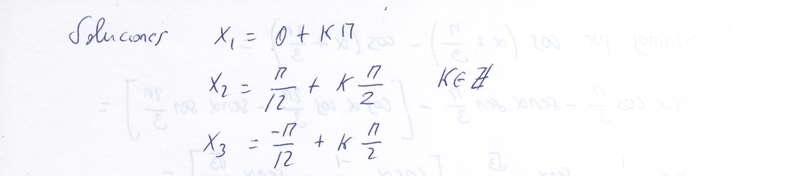 Soluciones x₁ = 0 + K π
x₂ = π/12 + K π/2 K ∈ ℤ
x₃ = -π/12 + K π/2